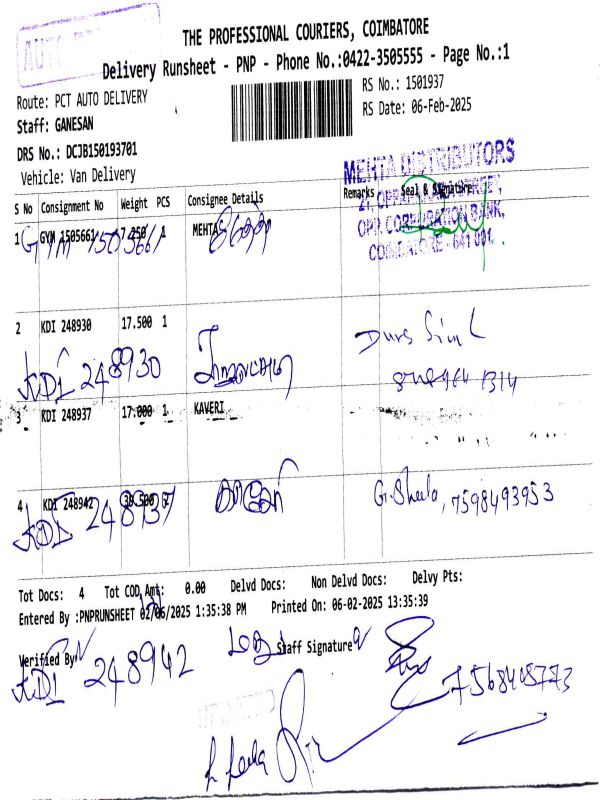 THE PROFESSIONAL COURIERS, COIMBATORE
Delivery Runsheet - PNP - Phone No.:0422-3505555 - Page No.:1
Route: PCT AUTO DELIVERY
RS No.: 1501937
Staff: GANESAN
RS Date: 06-Feb-2025
DRS No.: DCJB150193701
Vehicle: Van Delivery
MEHTA DISTRIBUTORS
S No Consignment No Weight PCS Consignee Details Remarks Seal & Signature
OPP. CORPORATION BANK,
COIMBATORE - 641 001.
1 GYM 1505661 7.250 1 MEHTA
GYM 1505661
2 KDI 248930 17.500 1
KDI 248930
3 KDI 248937 17.000 1 KAVERI
4 KDI 248942
KDI 248937
G. Sheela, 7598493953
Tot Docs: 4 Tot COD Amt: 0.00 Delvd Docs: Non Delvd Docs: Delvy Pts:
Entered By :PNPRUNSHEET 02/06/2025 1:35:38 PM Printed On: 06-02-2025 13:35:39
Verified By Staff Signature
KDI 248942
7568408773
UPDATED